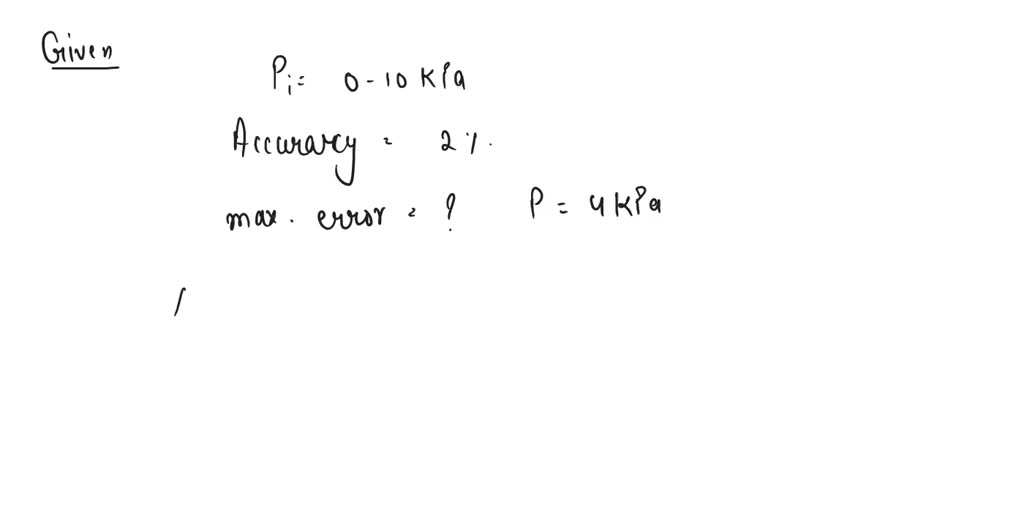 Given
Pi = 0-10 KPa
Accurarcy = 2%.
max. error = ? P = 4 KPa
/